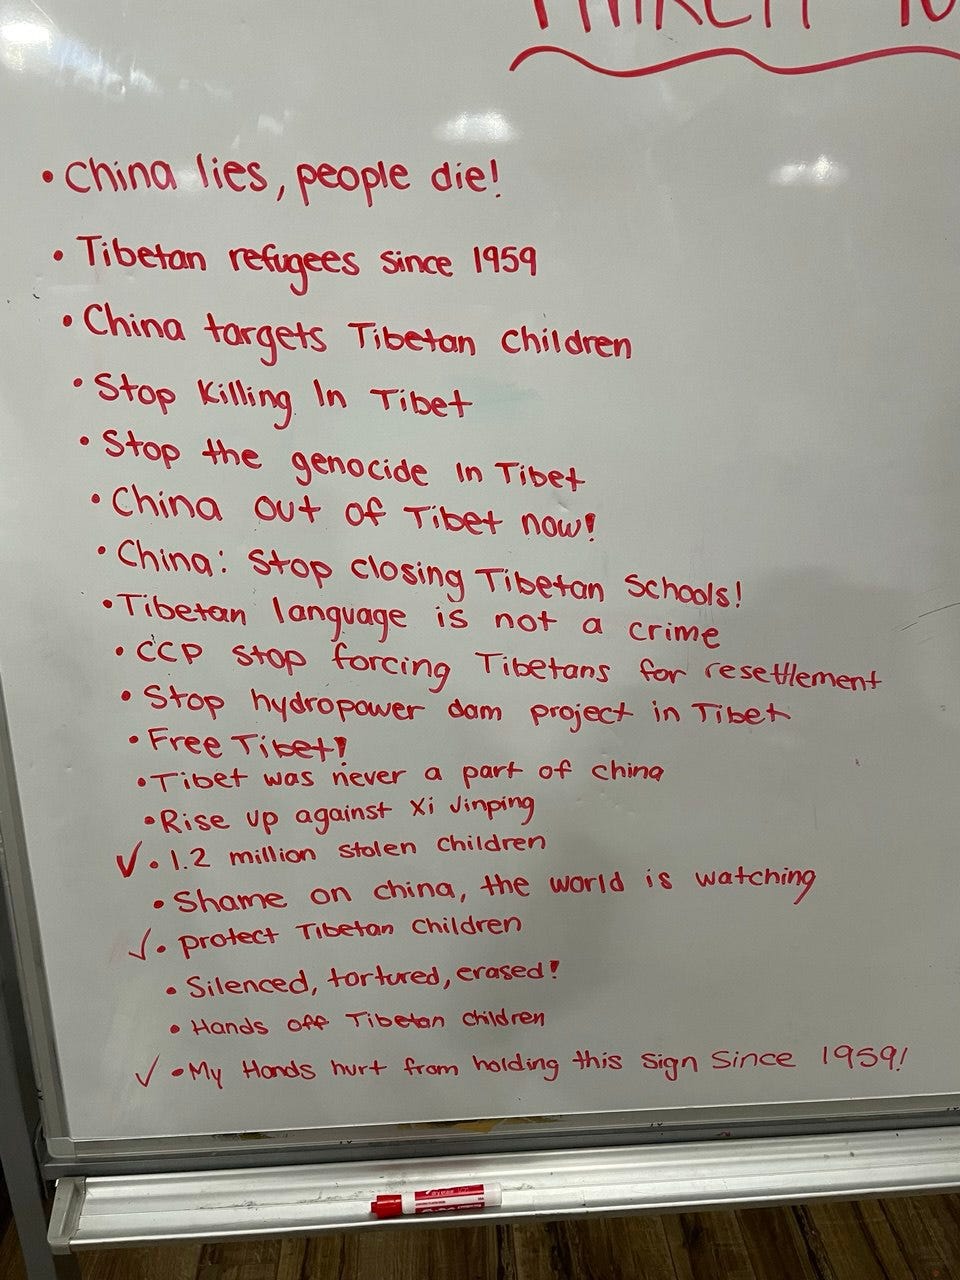 • China lies, people die!
• Tibetan refugees since 1959
• China targets Tibetan Children
• Stop Killing In Tibet
• Stop the genocide In Tibet
• China out of Tibet now!
• China: Stop closing Tibetan Schools!
• Tibetan language is not a crime
• CCP stop forcing Tibetans for resettlement
• Stop hydropower dam project in Tibet
• Free Tibet!
• Tibet was never a part of china
• Rise up against Xi Jinping
✓ • 1.2 million stolen children
• Shame on china, the world is watching
✓ • protect Tibetan Children
• Silenced, tortured, erased!
• Hands off Tibetan children
✓ • My Hands hurt from holding this sign Since 1959!